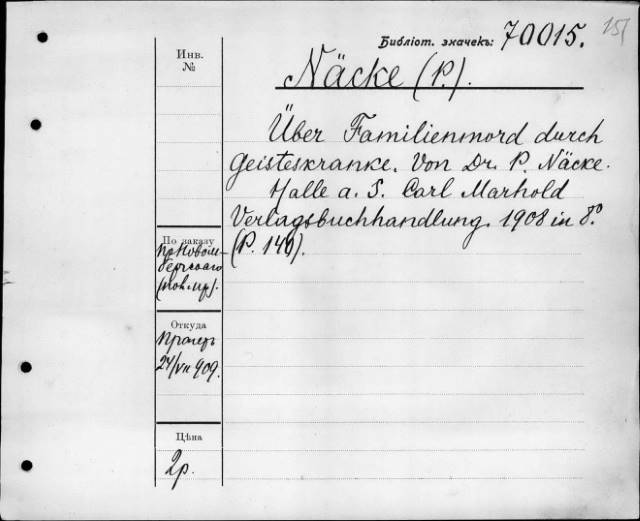 151
Библіот. значекъ: 70015.
Инв.
№
Näcke (P.).
Über Familienmord durch
Geisteskranke. Von Dr. P. Näcke.
Halle a. S. Carl Marhold
Verlagsbuchhandlung. 1908 in 8º
(P. 140).
По заказу
Откуда
24/VII 909.
Цѣна
2р.